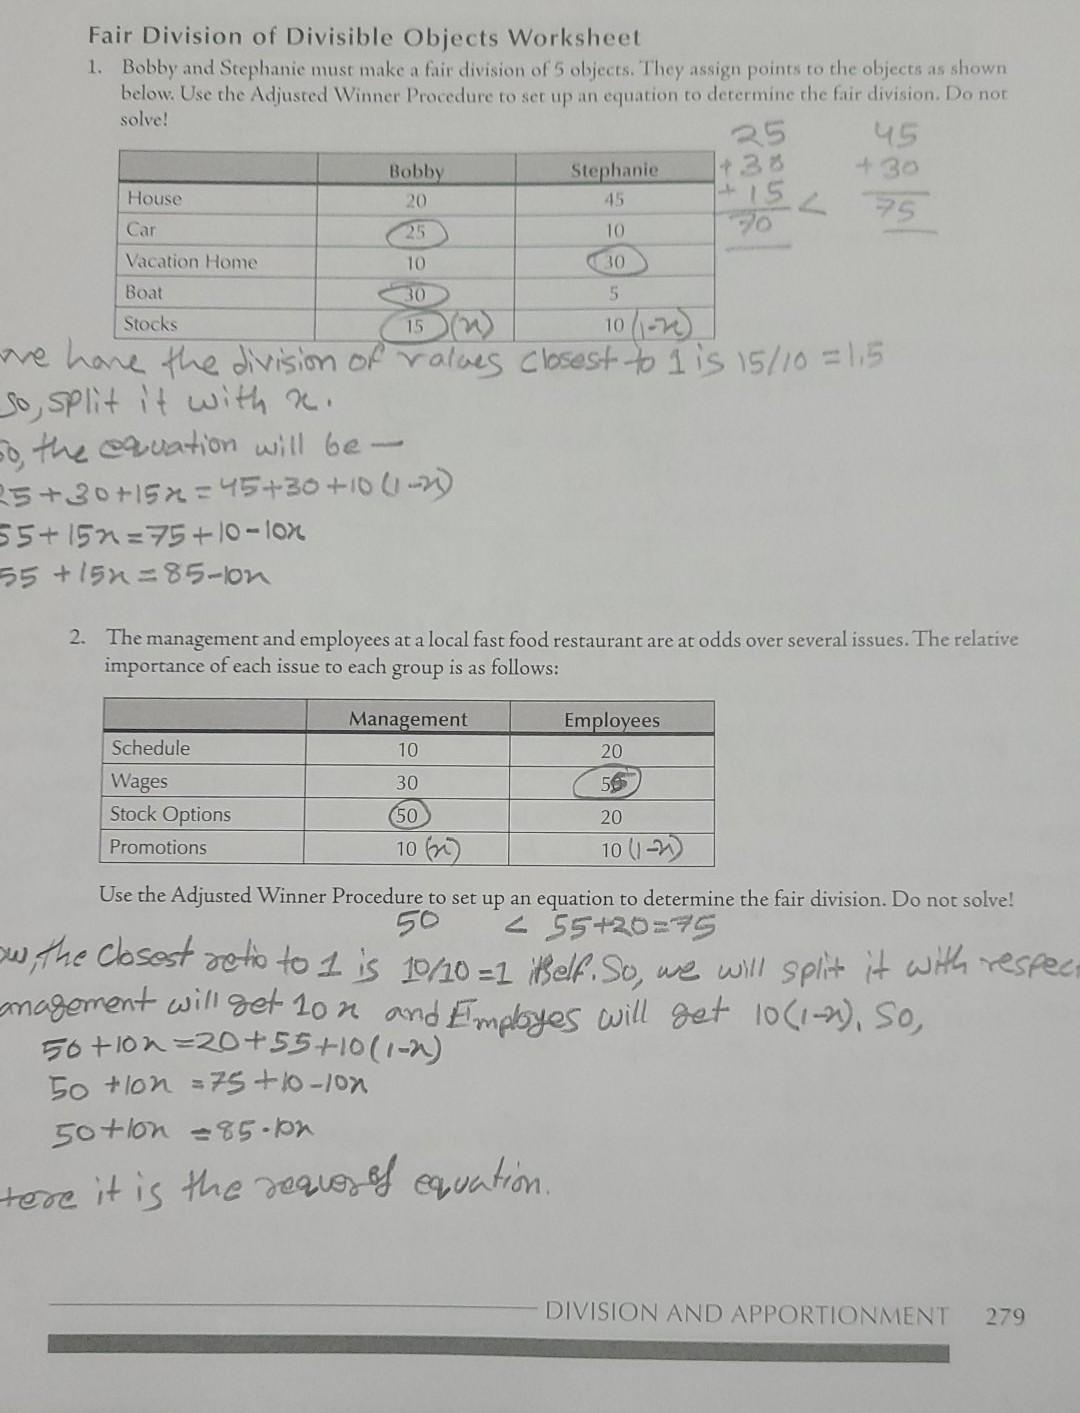 Fair Division of Divisible Objects Worksheet
1. Bobby and Stephanie must make a fair division of 5 objects. They assign points to the objects as shown
below. Use the Adjusted Winner Procedure to set up an equation to determine the fair division. Do not
solve!
25 45
+30 +30
+15 < 75
70
Bobby Stephanie
House 20 45
Car 25 10
Vacation Home 10 30
Boat 30 5
Stocks 15 (x) 10 (1-x)
we have the division of values closest to 1 is 15/10 = 1.5
so, split it with x.
So, the equation will be —
25+30+15x = 45+30+10(1-x)
55+15x = 75+10-10x
55 +15x = 85-10x
2. The management and employees at a local fast food restaurant are at odds over several issues. The relative
importance of each issue to each group is as follows:
Management Employees
Schedule 10 20
Wages 30 55
Stock Options 50 20
Promotions 10 (x) 10 (1-x)
Use the Adjusted Winner Procedure to set up an equation to determine the fair division. Do not solve!
50 < 55+20=75
the closest ratio to 1 is 10/10 =1 itself. So, we will split it with
will get 10x and Employes will get 10(1-x). So,
50+10x =20+55+10(1-x)
50 +10x =75+10-10x
50+10x =85-10x
it is the equation.
DIVISION AND APPORTIONMENT 279